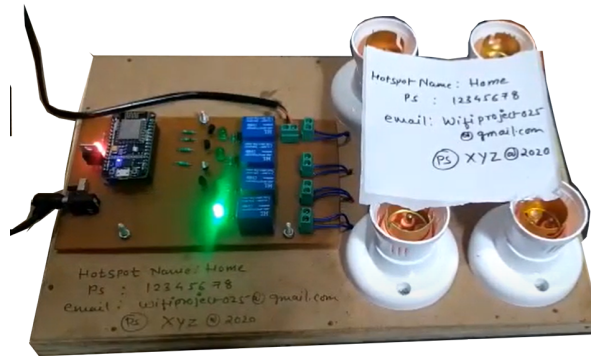 Hotspot Name: Home
Ps : 12345678
email: Wifiproject025
@gmail.com
Ps XYZ@2020
Hotspot Name: Home
Ps : 12345678
email: wifiproject025@gmail.com
Ps XYZ @ 2020